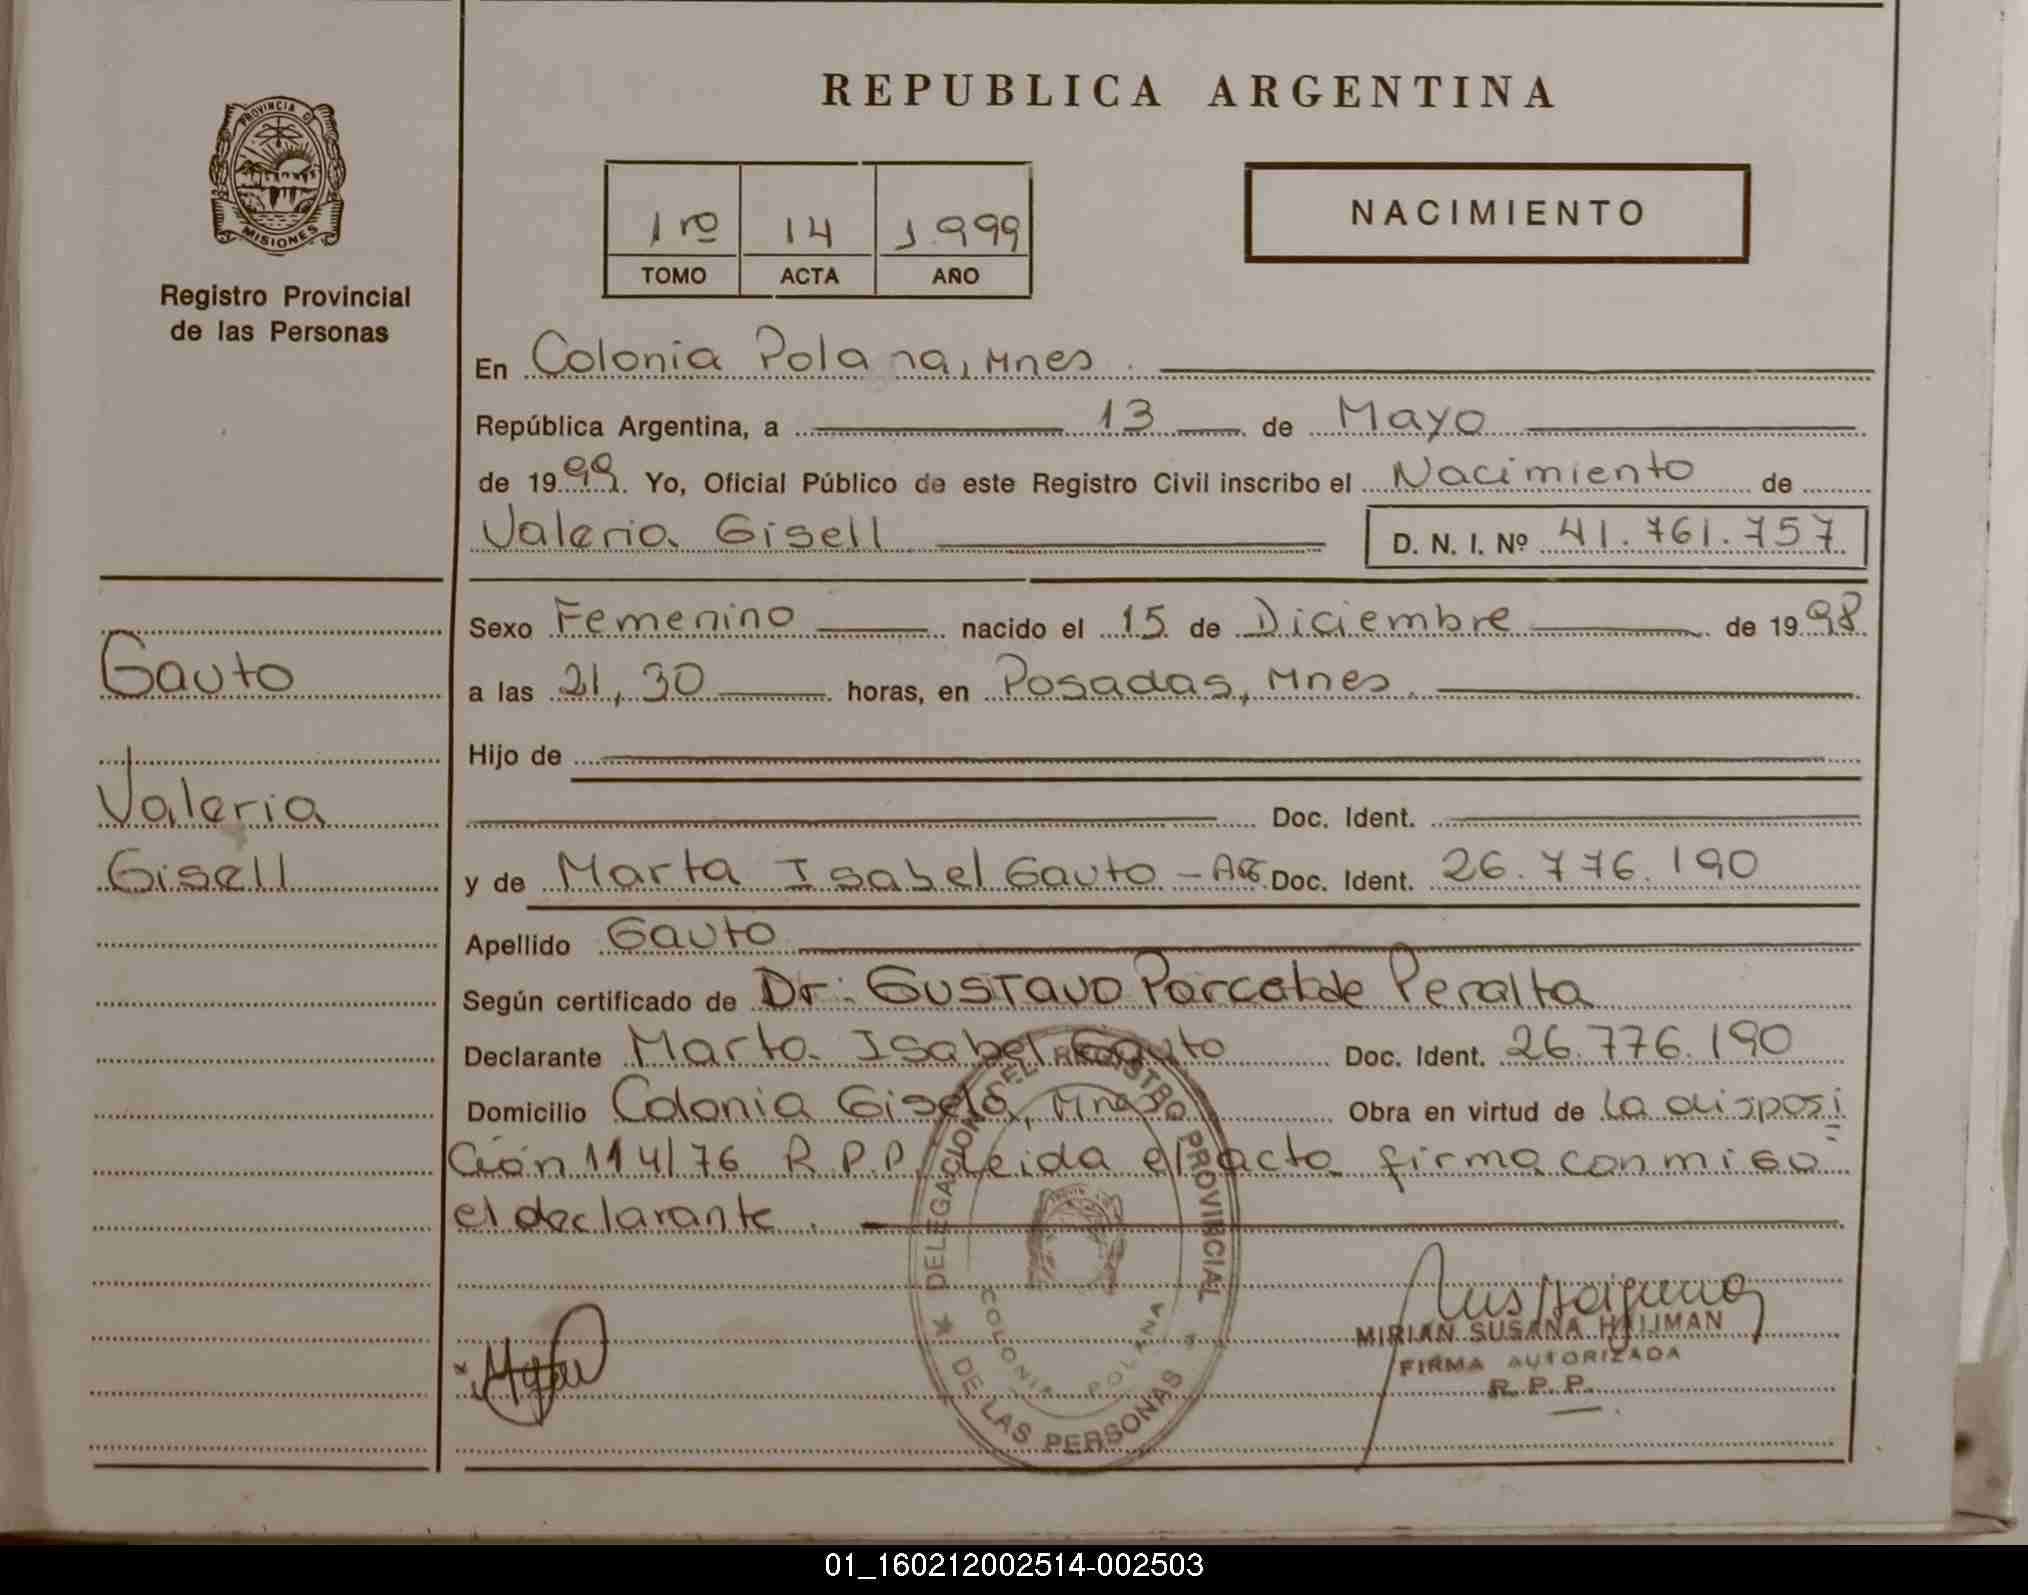 REPUBLICA ARGENTINA
PROVINCIA DE
MISIONES
Registro Provincial
de las Personas
1ro 14 1.999
TOMO ACTA AÑO
NACIMIENTO
En Colonia Polana, Mnes.
República Argentina, a 13 de Mayo
de 1999. Yo, Oficial Público de este Registro Civil inscribo el Nacimiento de
Valeria Gisell D. N. I. Nº 41.761.757
Sexo Femenino nacido el 15 de Diciembre de 1998
a las 21,30 horas, en Posadas, Mnes.
Hijo de
Doc. Ident.
y de Marta Isabel Gauto - Arg. Doc. Ident. 26.776.190
Apellido Gauto
Según certificado de Dr: Gustavo Peralta
Declarante Marta Isabel Gauto Doc. Ident. 26.776.190
Domicilio Colonia Gisela, Mnes Obra en virtud de la disposi
ción 114/76 R.P.P. Leida el acta firma conmigo
el declarante.
Gauto
Valeria
Gisell
DELEGACION DEL REGISTRO PROVINCIAL
DE LAS PERSONAS
COLONIA POLANA
MIRIAN SUSANA
FIRMA AUTORIZADA
R. P. P.
01_160212002514-002503